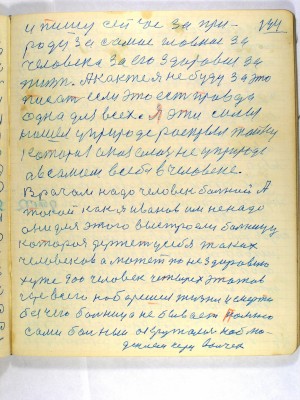 и пишу сейчас за при- 144
роду за самое главное за
человека за его здоровие за
жизн. А как же я не буду за это
писат если это ест правда
одна для всех. Я эти силы
нашел у природе раскрыл тайну
которая оказалас не у природе
а в самом в себе в человеке.
Врачам надо человек болний А
такой как я иванов им не надо
они для этого выстроели болницу
которая держит у себя таких
человеков а может по не здоровию
хуже 900 человек четырех этажов
через его наберешся жизни и смерти
без чего болница не бывает только
сами болные окружаются наблю-
дением сиди волчек